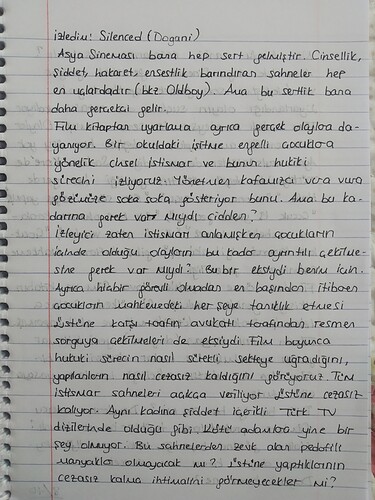 izledim: Silenced (Dogani)
Asya Sineması bana hep sert gelmiştir. Cinsellik,
şiddet, hakaret, ensestlik barındıran sahneler hep
en uclardadır (bkz Oldboy). Ama bu sertlik bana
daha gerçekçi gelir.
Film kitaptan uyarlama ayrıca gerçek olaylara da-
yanıyor. Bir okuldaki işitme engelli çocuklara
yönelik cinsel istismar ve bunun hukiki
sürecini izliyoruz. Yönetmen kafamıza vura vura
gözümüze soka soka gösteriyor bunu. Ama bu ka-
darına gerek var mıydı cidden?
İzleyici zaten istismarı anlamışken çocukların
içinde olduğu olayların bu kadar ayrıntılı çekilme-
sine gerek var mıydı? Bu bir eksiydi benim için.
Ayrıca hiçbir görevli olmadan en başından itibaren
çocukların mahkemedeki her şeye tanıklık etmesi
üstüne karşı tarafın avukatı tarafından resmen
sorguya çekilmeleri de eksiydi. Film boyunca
hukuki sürecin nasıl sürekli sekteye uğradığını,
yapılanların nasıl cezasız kaldığını görüyoruz. Tüm
istismar sahneleri açıkça veriliyor üstüne cezasız
kalıyor. Aynı kadına şiddet içerikli Türk TV
dizilerinde olduğu gibi kötü adamlara yine bir
şey olmuyor. Bu sahnelerden zevk alan pedofili
manyaklar olmayacak mı? Üstüne yaptıklarının
cezasız kalma ihtimalini görmeyecekler mi?